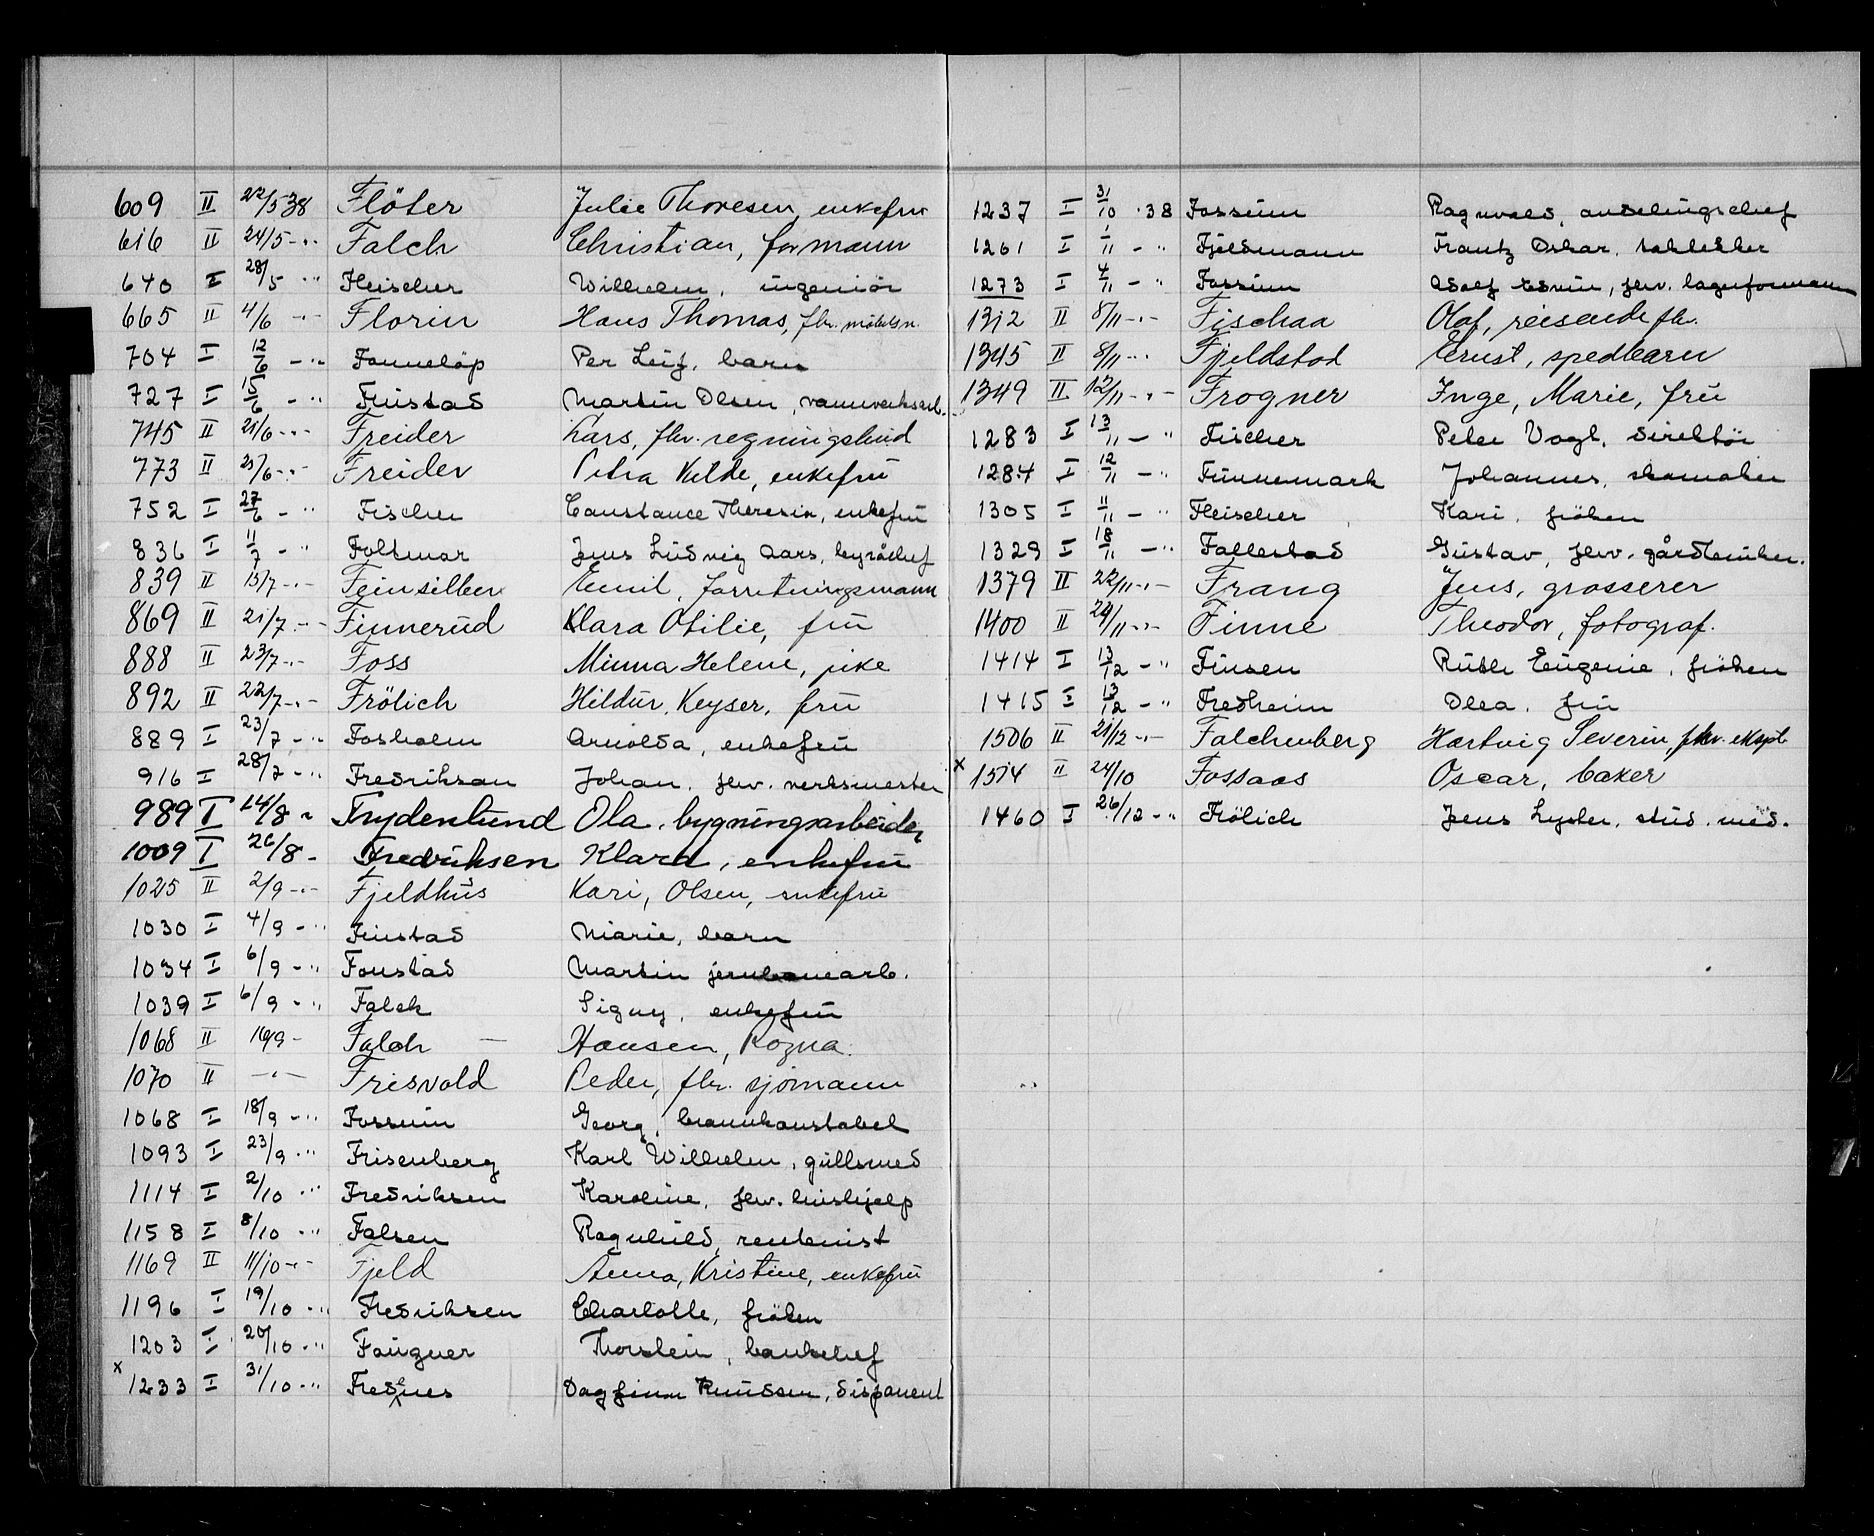 609 II 22/5 38 Flöter Julie Thoresen, enkefru
616 II 24/5 -"- Falch Christian, formann
640 I 28/5 " Fleischer Wilhelm, ingeniör
665 II 4/6 -"- Florin Hans Thomas, fhv.
704 I 12/6 -" Fonneløp Per Leif, barn
727 I 15/6 -" Finstad Martin Olsen, vannverksarb.
745 II 21/6 -"- Freider Lars, fhv. regningsbud
773 II 25/6 -"- Freider Petra Kilde, enkefru
752 I 27/6 -" Fischer Constance Theresia, enkefru
836 I 11/7 -" Foltmar Jens Ludvig Aars, byråchef
839 II 15/7 -"- Feinsilber Emil, forretningsmann
869 II 21/7 -"- Finnerud Klara Otilie, fru
888 II 23/7 -"- Foss Minna Helene, pike
892 II 22/7 -"- Frölich Hildur, Keyser, fru
889 I 23/7 -" Fosholm Arnolda, enkefru
916 I 28/7 -" Fredriksen Johan, fhv. verksmester
989 I 14/8 " Frydenlund Ola, bygningsarbeider
1009 I 26/8 - Fredriksen Klara, enkefru
1025 II 2/9 -"- Fjeldhus Kari, Olsen, enkefru
1030 I 4/9 -" Finstad Marie, barn
1034 I 6/9 -" Fonstad Martin jernbanearb.
1039 I 6/9 -" Falck Signy, enkefru
1068 II 16/9 - Falch — Hansen, Rozna.
1070 II -"- Frisvold Peder, fhv. sjömann
1068 I 18/9 -" Fossum Georg, brannkonstabel
1093 I 23/9 " Frisenberg Karl Wilhelm, gullsmed
1114 I 2/10 " Fredriksen Karoline, fhv. hushjelp
1158 I 8/10 " Falsen Ragnhild, rentenist
1169 II 11/10 -"- Fjeld Anna, Kristine, enkefru
1196 I 19/10 -" Fredriksen Charlotte, fröken
1203 I 20/10 -" Fougner Thorstein, bankchef
x 1233 I 31/10 -" Fredenes Dagfinn Knudsen, disponent
1237 I 31/10 . 38 Fossum Ragnvald, avdelingschef
1261 I 1/11 -" Fjeldmann Frantz Oskar,
1273 I 4/11 -" Fossum Adolf Edvin, fhv. lagerformann
1312 II 8/11 -"- Fischaa Olaf, reisende fhv.
1345 II 8/11 -"- Fjeldstad Ernst, spedbarn
1349 II 12/11 -"- Frogner Inge, Marie, fru
1283 I 13/11 -" Fischer Peter Vogt, direktör
1284 I 12/11 -" Funnemark Johannes, skomaker
1305 I 11/11 -" Fleischer Kari, fröken
1329 I 18/11 -" Fallestad Gustav, fhv. gårdbruker.
1379 II 22/11 -"- Frang Jens, grosserer
1400 II 29/11 -"- Finne Theodor, fotograf.
1414 I 13/12 -" Finsen Ruth Eugenie, fröken
1415 I 13/12 -" Fredheim Olea, fru
1506 II 21/12 -"- Falchenberg Hartvig Severin, fhv. eksp.
x 1514 II 24/10 Fossaas Oscar, baker
1460 I 26/12 -" Frölich Jens Lysler, stud. med.